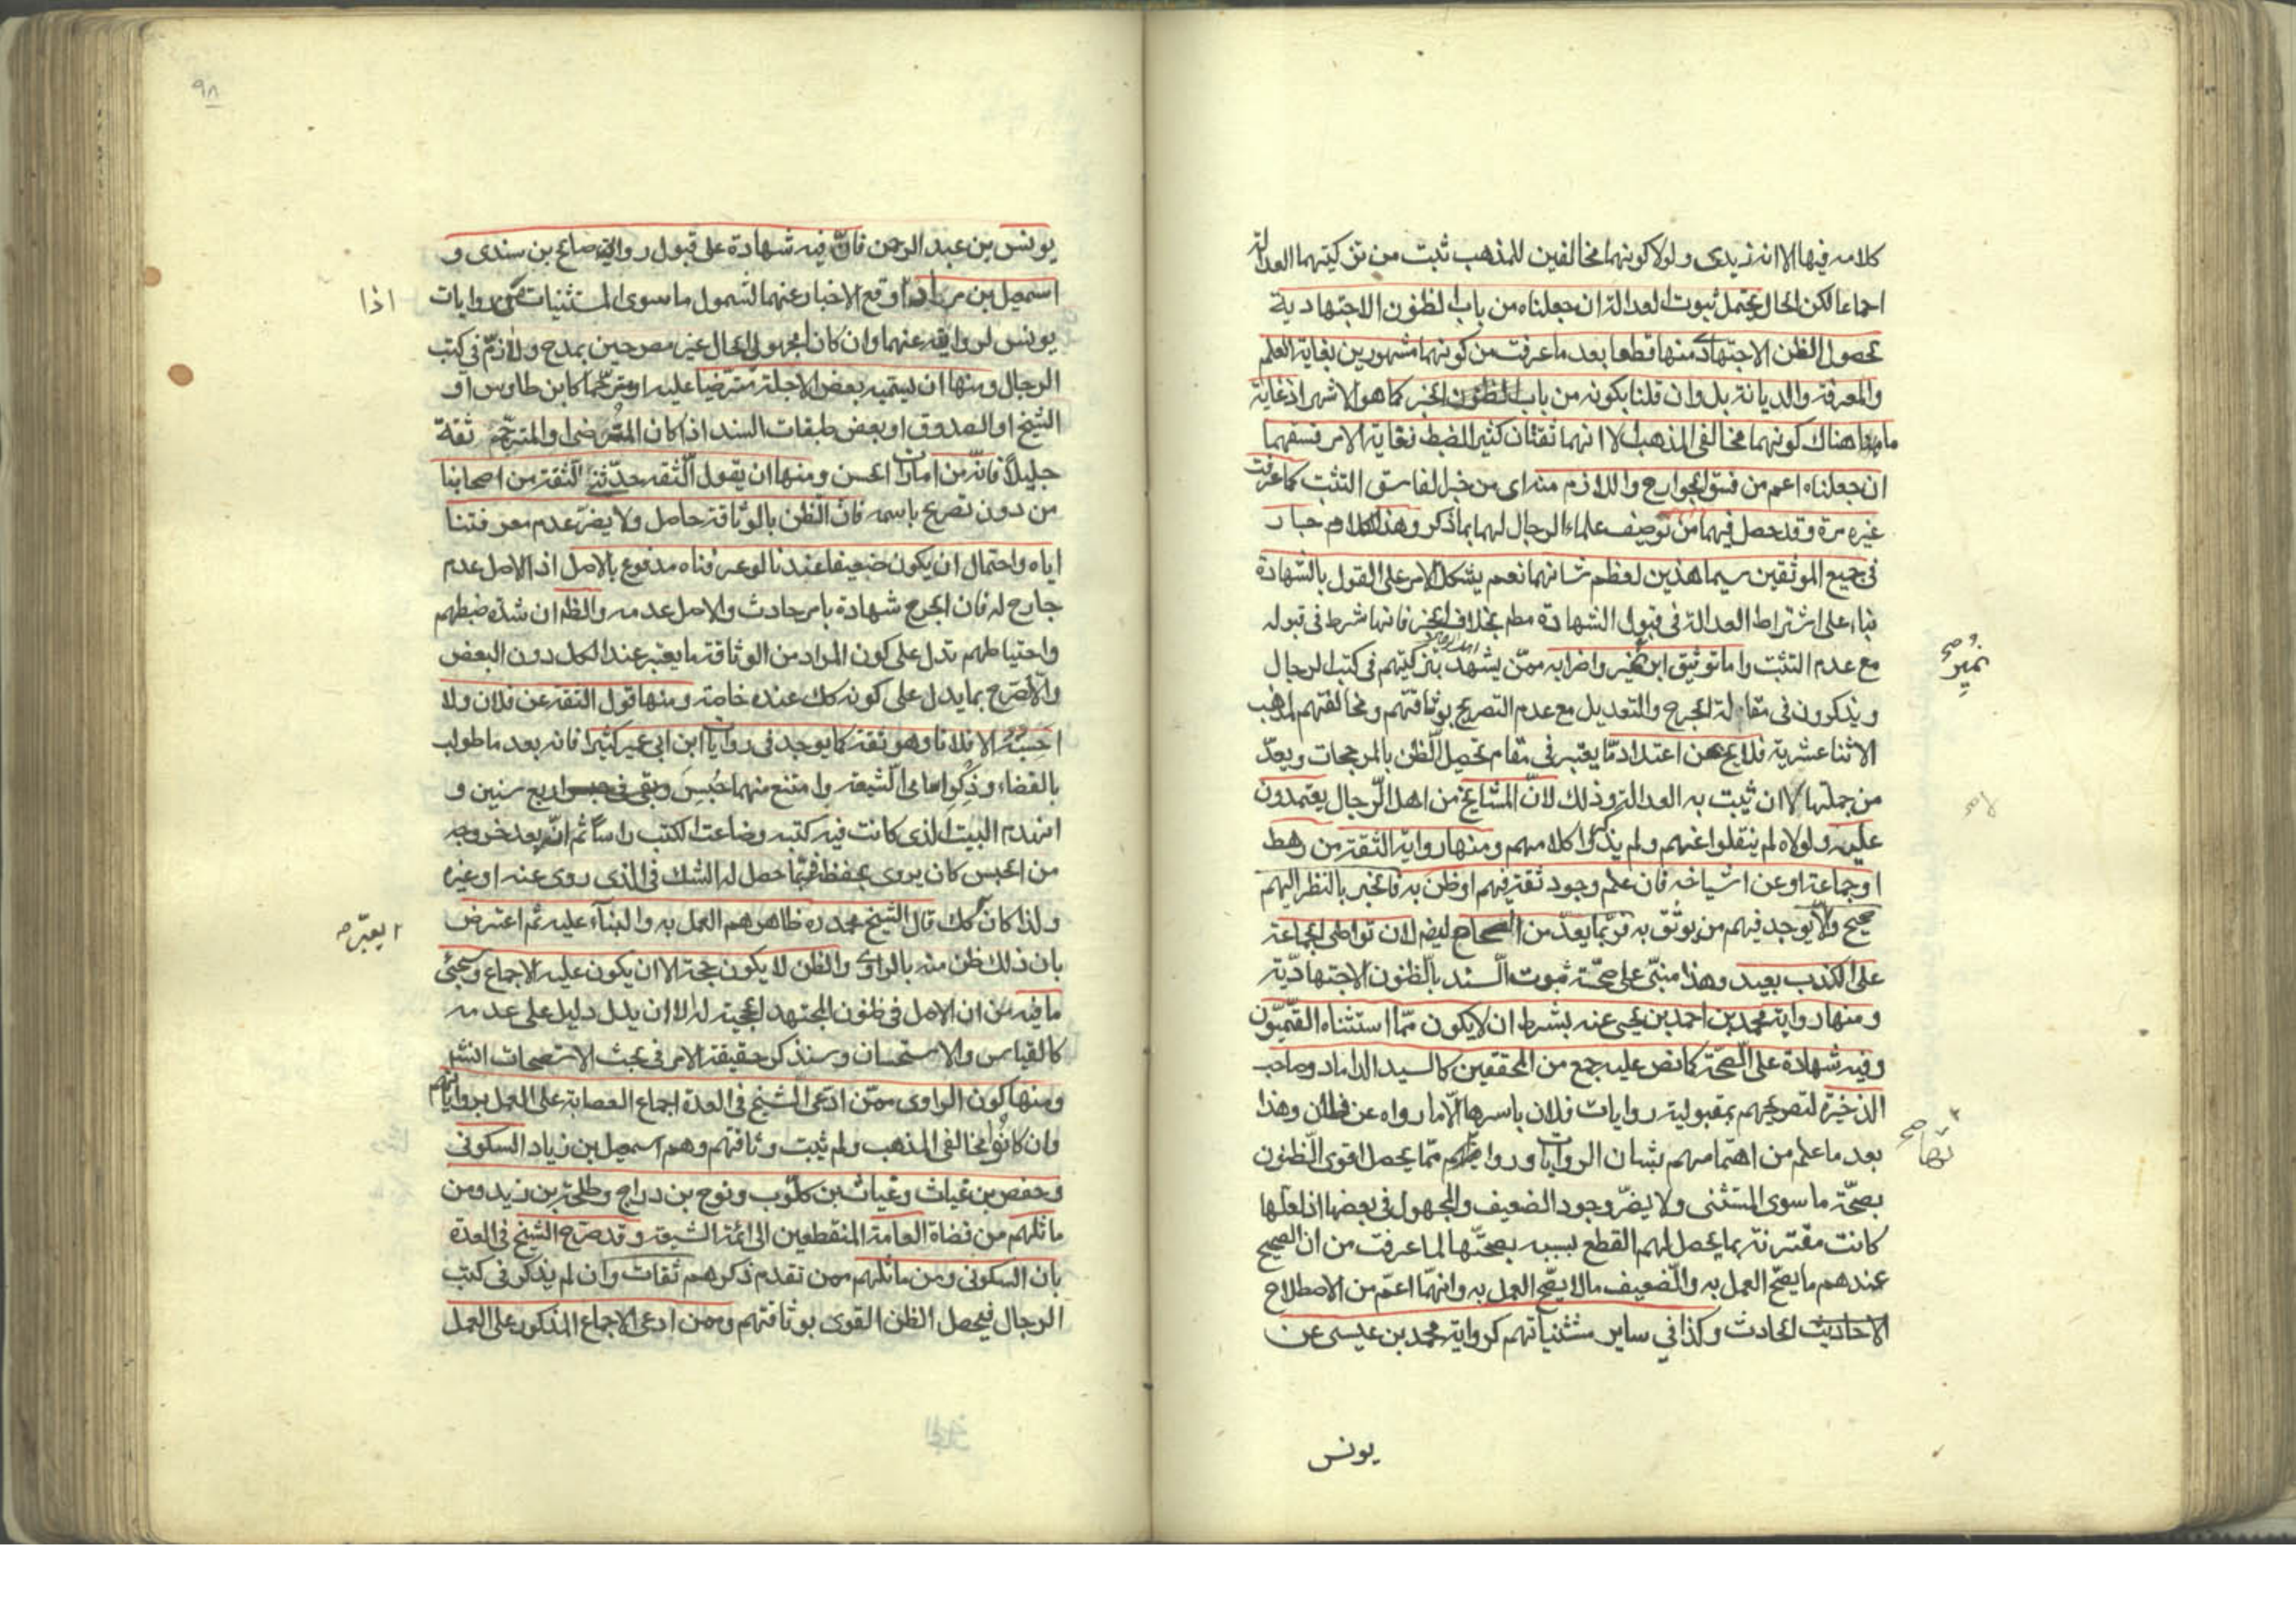 كلامه فيها الا انه زيدى ولولا كونهما مخالفين للمذهب ثبت من تزكيتهما العدالة
اجماعا لكن الحال يحتمل ثبوت العدالة ان جعلناه من باب الظنون الاجتهادية
لحصول الظن الاجتهادى منها قطعا بعد ما عرفت من كونهما مشهورين بغاية العلم
والمعرفة والديانة بل وان قلنا بكونه من باب الخبر كما هو الاشهر اذ غاية
ما هناك كونهما مخالفى المذهب الا انهما ثقتان كثير الضبط فغاية الامر فسقهما
ان جعلناه اعم من فسق الجوارح واللازم منه اى من خبر الفاسق التثبت كما عرفت
غيره مرة وقد حصل فيهما من توصيف علماء الرجال لهما بما ذكر وهذا الكلام جار
فى جميع الموثقين سيما هذين لعظم شانهما نعم يشكل الامر على القول بالشهادة
بناء على اشتراط العدالة فى قبول الشهادة مطم بخلاف الخبر فانها شرط فى قبوله
مع عدم التثبت واما توثيق ابن نمير واضرابه ممّن يشهد بتزكيتهم فى كتب الرجال
نُميرٍ صح
ويذكرون فى مقام الجرح والتعديل مع عدم التصريح بوثاقتهم ومخالفتهم لمذهب
الاثنا عشرية فلا يخ عن اعتداد ممّا يعتبر فى مقام تحصيل الظن بالمرجحات ويعدّ
من جملتها لا ان يثبت به العدالة وذلك لانّ المشايخ من اهل الرّجال يعتمدون
لا صح
عليه ولولاه لم ينقلوا عنهم ولم يذكروا كلامهم ومنها رواية الثقة من رهط
او جماعة او عن اشياخه فان علم وجود ثقة فيهم او ظن به فالخبر بالنظر اليهم
صحيح والّا يوجد فيهم من يوثق به فربّما يعدّ من الصحاح ايضم لان تواطى الجماعة
على الكذب بعيد وهذا مبنىّ على صحّة ثبوت السّند بالظنون الاجتهاديّة
ومنها رواية محمد بن احمد بن يحيى عنه بشرط ان لا يكون ممّا استثناه القمّيّون
وفيه شهادة على الصّحّة كما نص عليه جمع من المحققين كالسيد الداماد وصاحب
الذخيرة لتصريحهم بمقبولية روايات فلان باسرها الّا ما رواه عن فلان وهذا
بعد ما علم من اهتمامهم بشان الروايات ورواتها ممّا يحصل اقوى الظنون
تها صح
بصحّة ما سوى المستثنى ولا يضرّ وجود الضعيف والمجهول فى بعضها اذ لعلها
كانت مقترنة بما يحصل لهم القطع بسببه بصحّتها لما عرفت من ان الصحيح
عندهم ما يصحّ العمل به والضّعيف ما لا يصّح العمل به وانهما اعمّ من الاصطلاح
الاحاديث الحادث وكذا فى ساير مستثنياتهم كرواية محمد بن عيسى عن
يونس
٩٨
يونس بن عبد الرحمن فانّ فيه شهادة على قبول رواية صالح بن سندى و
اسمعيل بن مرار اذا وقع الاخبار عنهما لشمول ما سوى المستثنيات روايات
اذا
يونس لروايته عنهما وان كانا مجهولى الحال غير مصرحين بمدح ولا ذمّ فى كتب
الرجال ومنها ان يسميه بعض الاجلة مترّضيا عليه او مترحّما كابن طاوس او
الشيخ او الصدوق او بعض طبقات السند اذا كان المترضى او المترحّم ثقة
جليلاً فانّه من امارات الحسن ومنها ان يقول الثّقة حدّثنى الثّقة من اصحابنا
من دون تصريح باسمه فان الظن بالوثاقة حاصل ولا يضرّ عدم معرفتنا
اياه واحتمال ان يكون ضعيفا عندنا لو عرفناه مدفوع بالاصل اذ الاصل عدم
جارح له فان الجرح شهادة بامر حادث والاصل عدمه والظم ان شدة ضبطهم
واحتياطهم تدل على كون المراد من الوثاقة ما يعتبر عند الكل دون البعض
والّا لصرّح بما يدل على كونه كك عنده خاصة ومنها قول الثقة عن فلان ولا
احسبُهُ الا فلانا وهو ثقة كما يوجد فى روايات ابن ابى عمير كثيرا فانه بعد ما طولب
بالقضاء وذكر اسامى الشّيعة وامتنع منهما حُبِسَ وبقى فى اربع سنين و
انهدم البيت الذى كانت فيه كتبه وضاعت الكتب راساً ثم انّه بعد خروجه
من الحبس كان يروى بحفظه فربّما حصل له الشك فى الذى روى عنه او غيره
ولذا كان كك قال الشيخ محمد ره ظاهرهم العمل به والبناء عليه ثم اعترض
بان ذلك ظن منه بالراوى والظن لا يكون حجة الا ان يكون عليه الاجماع وسيجئ
ما فيه من ان الاصل فى ظنون المجتهد الحجية له الا ان يدل دليل على عدمه
كالقياس والاستحسان وسنذكر حقيقة الامر فى بحث الاستصحاب انشا
ومنها كون الراوى ممّن ادّعى الشّيخ فى العدة اجماع العصابة على العمل برواياتهم
وان كانوا مخالفى المذهب ولم يثبت وثاقتهم وهم اسمعيل بن زياد السكونى
وحفص بن غياث وغياث بن كلّوب ونوح بن دراج وطلحة بن زيد ومن
ماثلهم من قضاة العامة المنقطعين الى ائمة الشيعة وقد صرّح الشيخ فى العدة
بان السكونى ومن ماثلهم ممن تقدم ذكرهم ثقات وان لم يذكر فى كتب
الرجال فيحصل الظن القوى بوثاقتهم وممن ادعى الاجماع المذكور على العمل